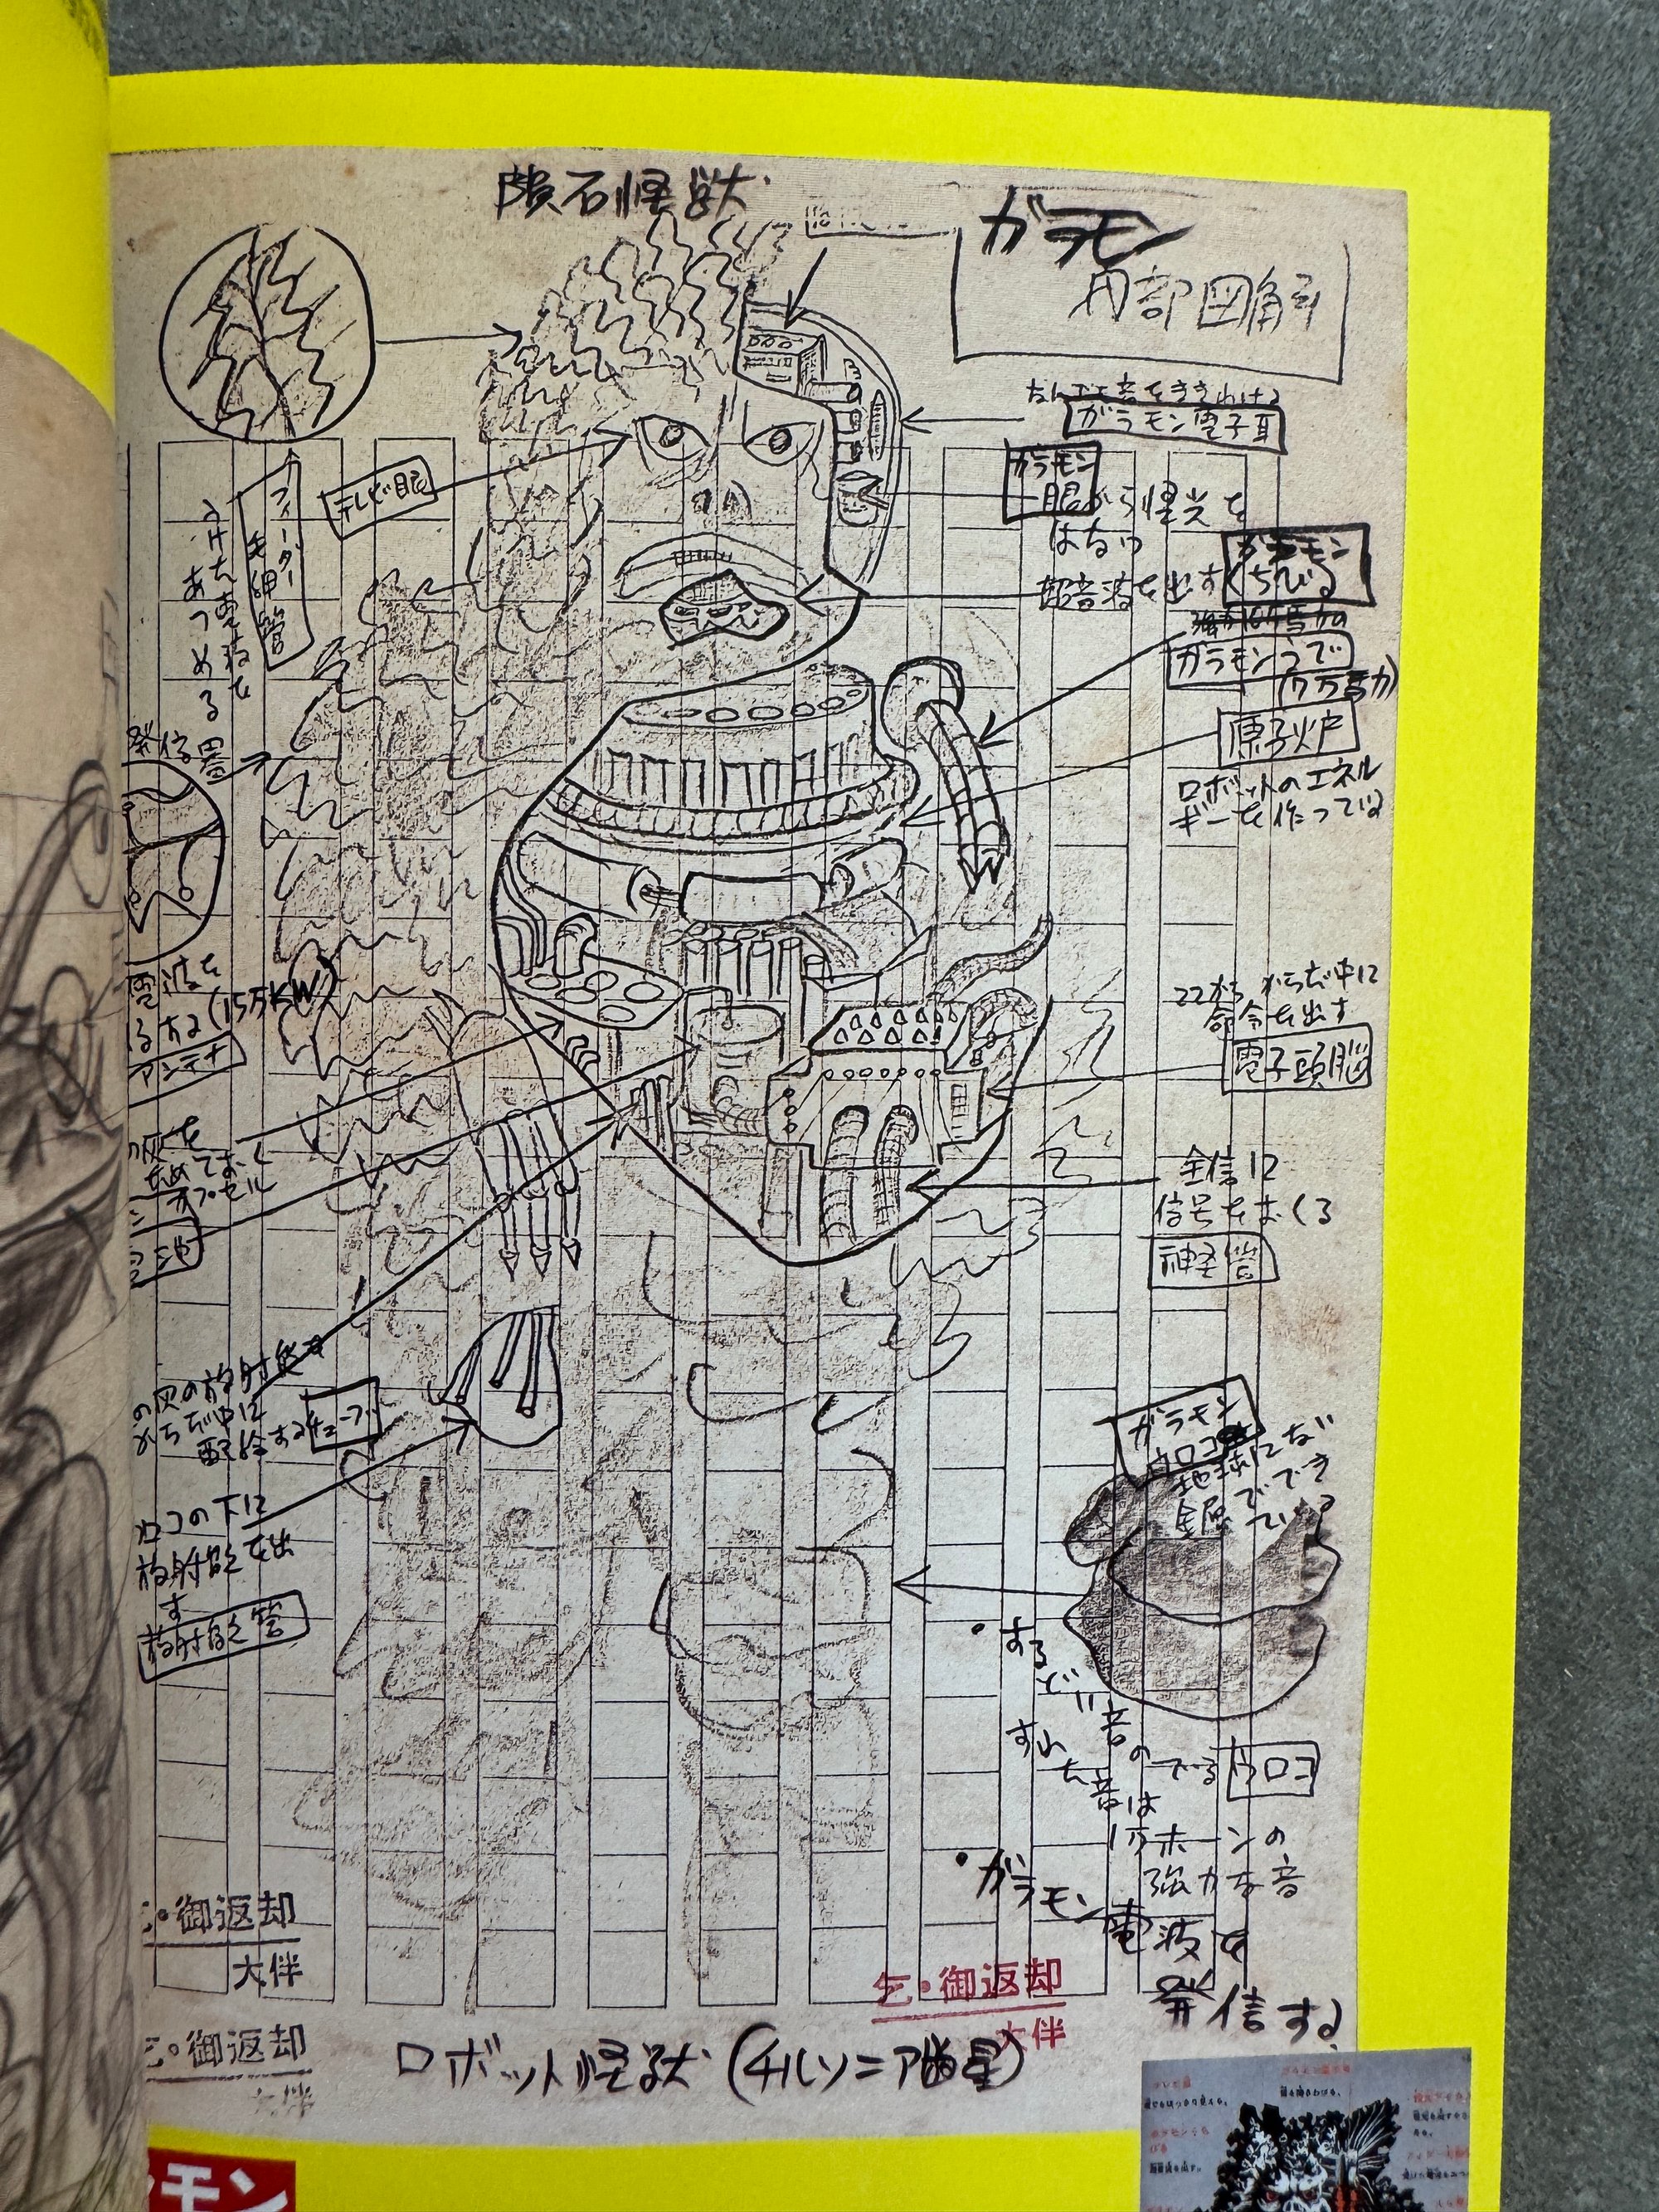 隕石怪獣
ガラモン
内部図解
なんでも音をききわける
ガラモン電子耳
テレビ眼
ガラモン
眼から怪光を
はなつ
ガラモン
くちびる
超音波を出す
フィーダー
毛細管
うけた電波を
あつめる
ガラモンうで
(7万馬力)
原子炉
ロボットのエネル
ギーを作っている
発信器
電波を
(15万KW)
アンテナ
ここから からだ中に
命令を出す
電子頭脳
ためておく
カプセル
全信に
信号をおくる
神経管
の灰の放射能を
からだ中に
配給するチューブ
ウロコの下に
放射能を出
す
放射能管
ガラモン
ウロコ
地球にない
金属ででき
ている
・するどい音
のでるウロコ
すれた音は
1万ホーンの
強力な音
・ガラモン電波を
発信する
乞・御返却
大伴
乞・御返却
大伴
乞・御返却
大伴
ロボット怪獣(チルソニア遊星)
モン